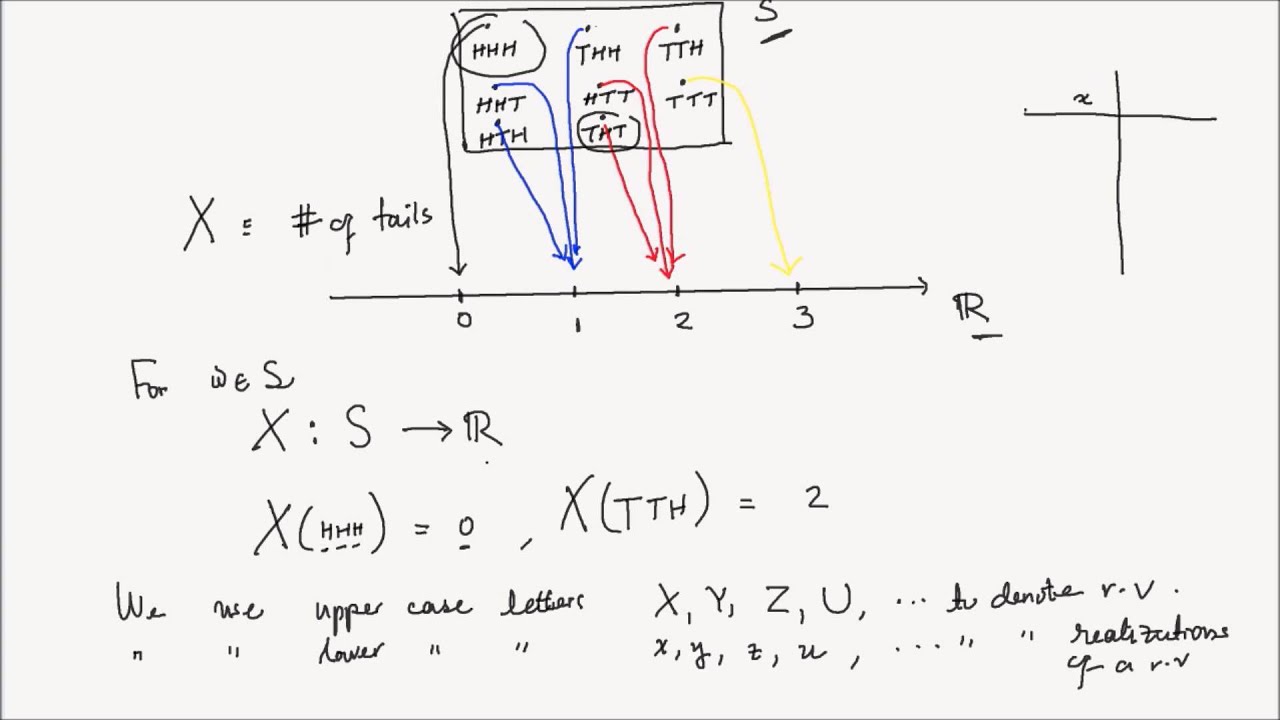 S
HHH THH TTH
HHT HTT TTT
HTH THT
x
X = # of tails
0 1 2 3
ℝ
For ω ∈ S
X : S → ℝ
X(HHH) = 0 , X(TTH) = 2
We use upper case letters X, Y, Z, U, ... to denote r.v.
" " lower " " x, y, z, u, ... " " realizations
of a r.v